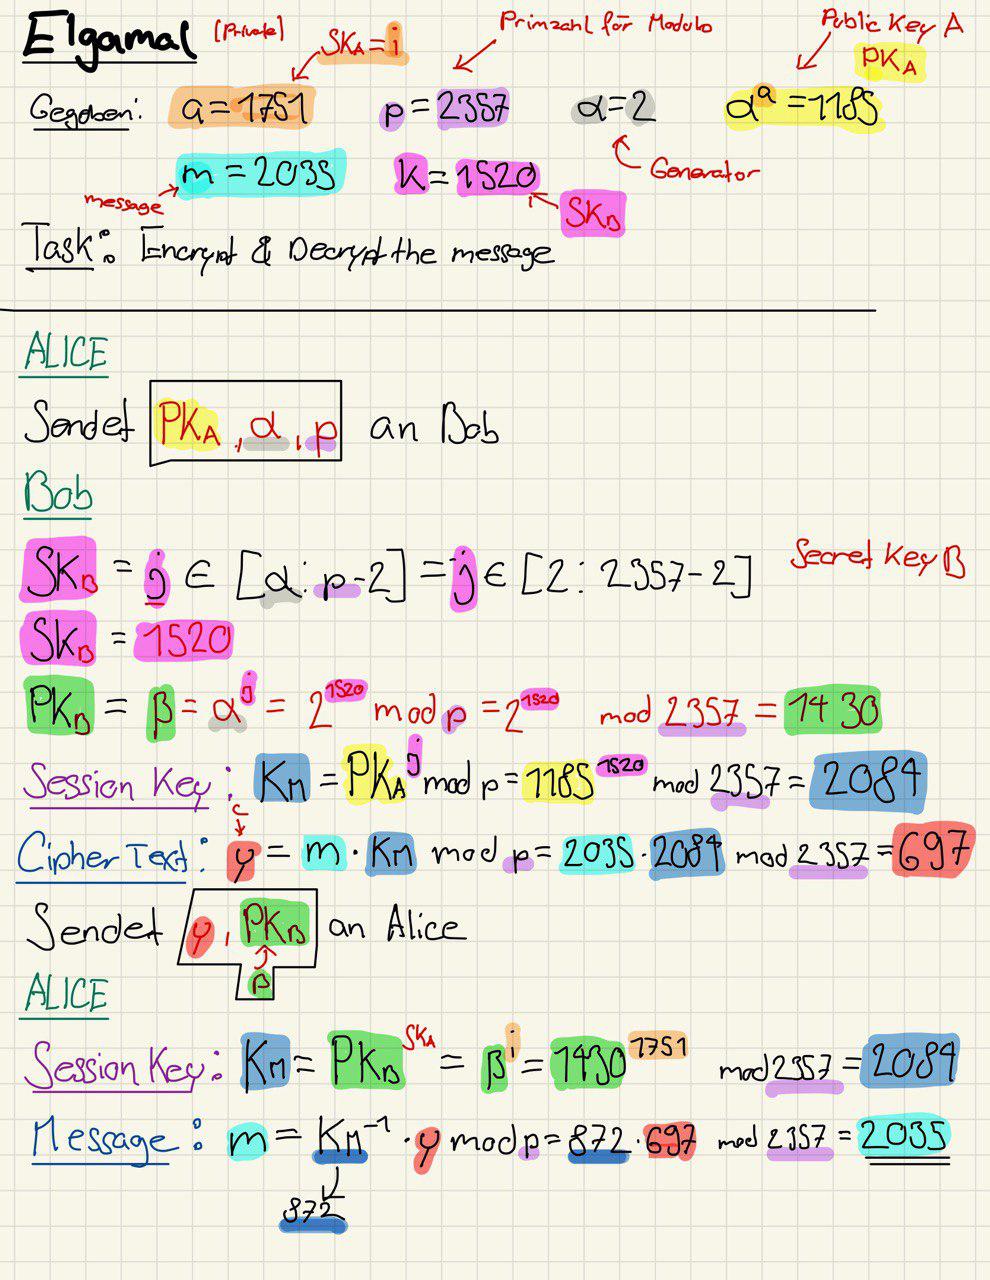 Elgamal [Private] SK_A = i Primzahl für Modulo Public Key A PK_A
Gegeben: a = 1751 p = 2357 α = 2 α^a = 1185
Generator
m = 2035 k = 1520
message SK_B
Task: Encrypt & Decrypt the message
ALICE
Sendet PK_A, α, p an Bob
Bob
SK_B = j ∈ [α: p-2] = j ∈ [2: 2357-2] Secret Key B
SK_B = 1520
PK_B = β = α^j = 2^1520 mod p = 2^1520 mod 2357 = 1430
Session Key: K_M = PK_A^j mod p = 1185^1520 mod 2357 = 2084
c
Cipher Text: y = m · K_M mod p = 2035 · 2084 mod 2357 = 697
Sendet y, PK_B an Alice
β
ALICE
Session Key: K_M = PK_B^SK_A = β^i = 1430^1751 mod 2357 = 2084
Message: m = K_M^-1 · y mod p = 872 · 697 mod 2357 = 2035
872